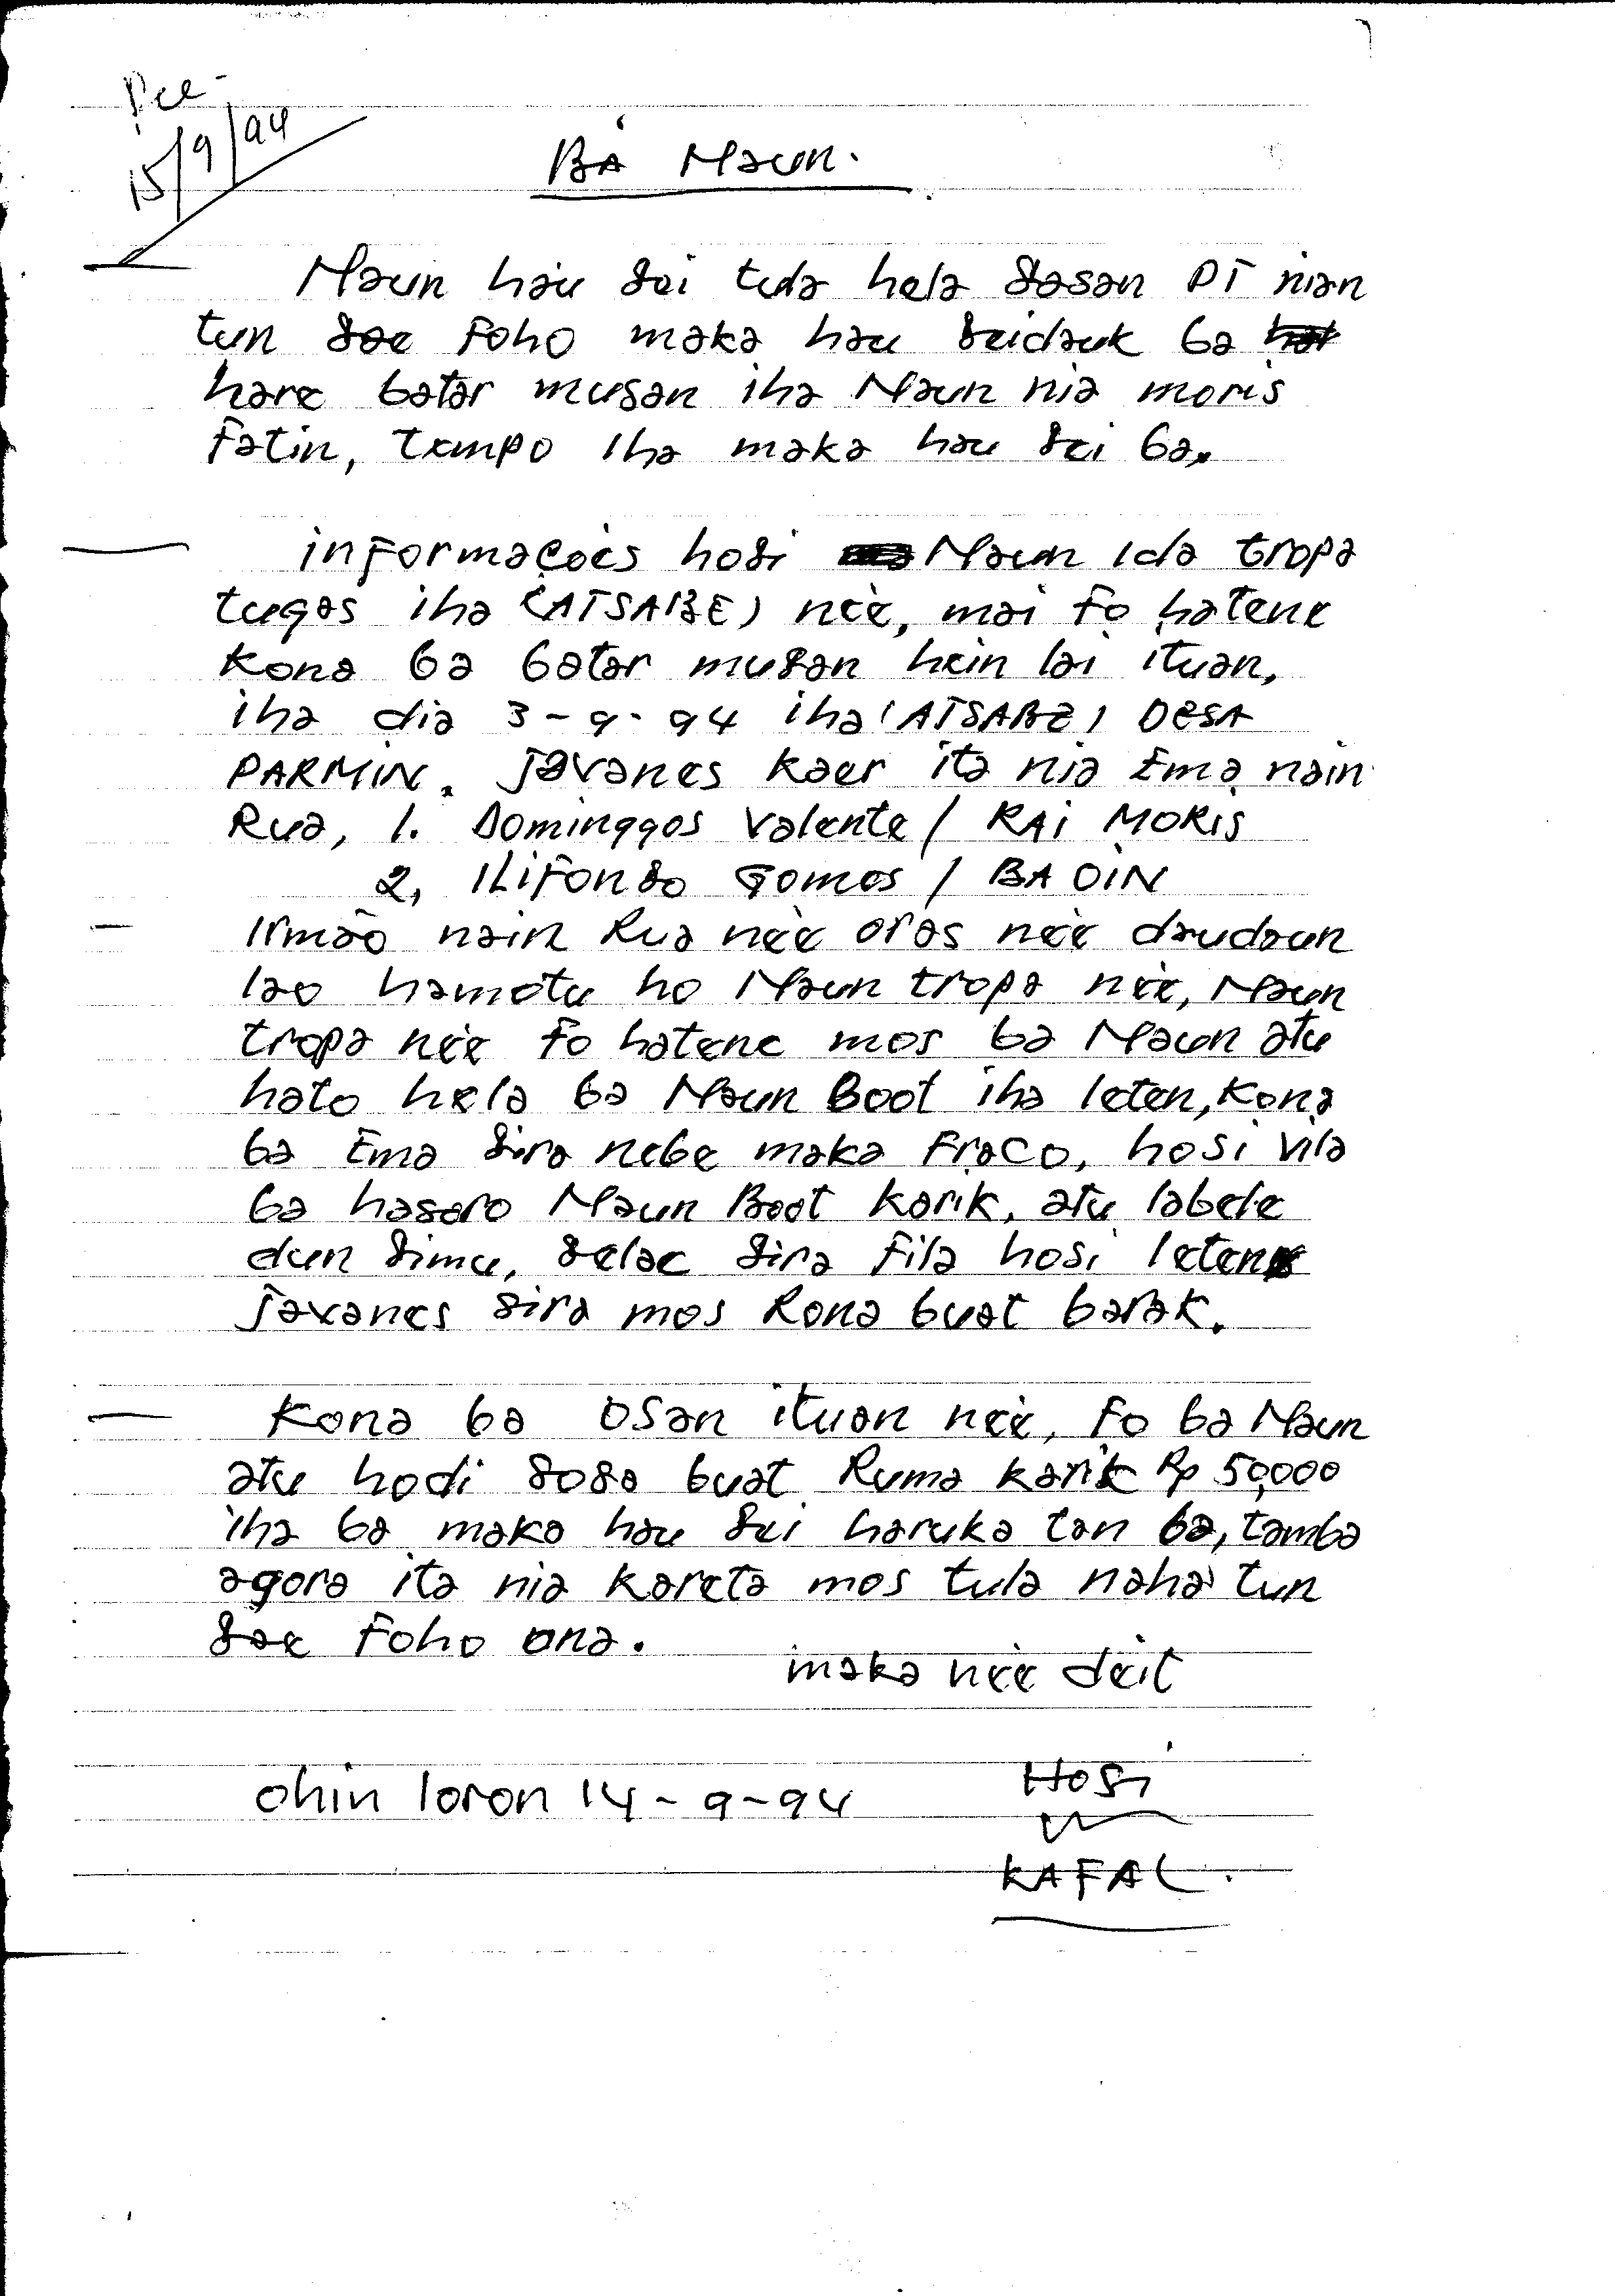 Rec-
15/9/94
BÁ Maun.
Maun háu sei tula hela sasan PT nian
tun sae Foho maka hau seidauk ba
hare batar musan iha Maun nia moris
Fatin, tempo Iha maka hau sei ba.
informações hosi Maun Ida tropa
tugas iha (ATSABE) neé, mai Fo hatene
Kona ba batar musan hein lai ituan,
iha dia 3-9-94 iha (ATSABE) DESA
PARMIN. Javanes kaer ita nia Ema nain
Rua, 1. Dominggos Valente / RAI MORIS
2, ILIFONSO Gomes / BA OIN
Irmão nain Rua neé oras neé daudaun
lao hamotu ho Maun tropa neé, Maun
tropa neé Fo hatene mos ba Maun atu
hato hela ba Maun Boot iha leten, Kona
ba Ema sira nebe maka Fraco, hosi vila
ba hasoro Maun Boot Karik, atu labele
dun simu, selae sira Fila hosi leten
Javanes sira mos Rona buat barak.
Kona ba Osan ituan neé, Fo ba Maun
atu hodi sosa buat Ruma karik Rp 50,000
iha ba maka hau sei haruka tan ba, tamba
agora ita nia kareta mos tula naha tun
sae Foho ona.
maka neé deit
ohin loron 14-9-94
HOSI
KAFAL.